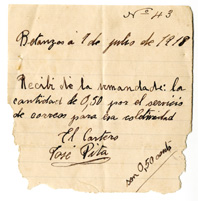 Nº 43
Betanzos á 1 de julio de 1918
Recibí de la
cantidad de 0,50 por el servicio
de correos para esa colectividad
El Cartero
José Pita
son 0,50